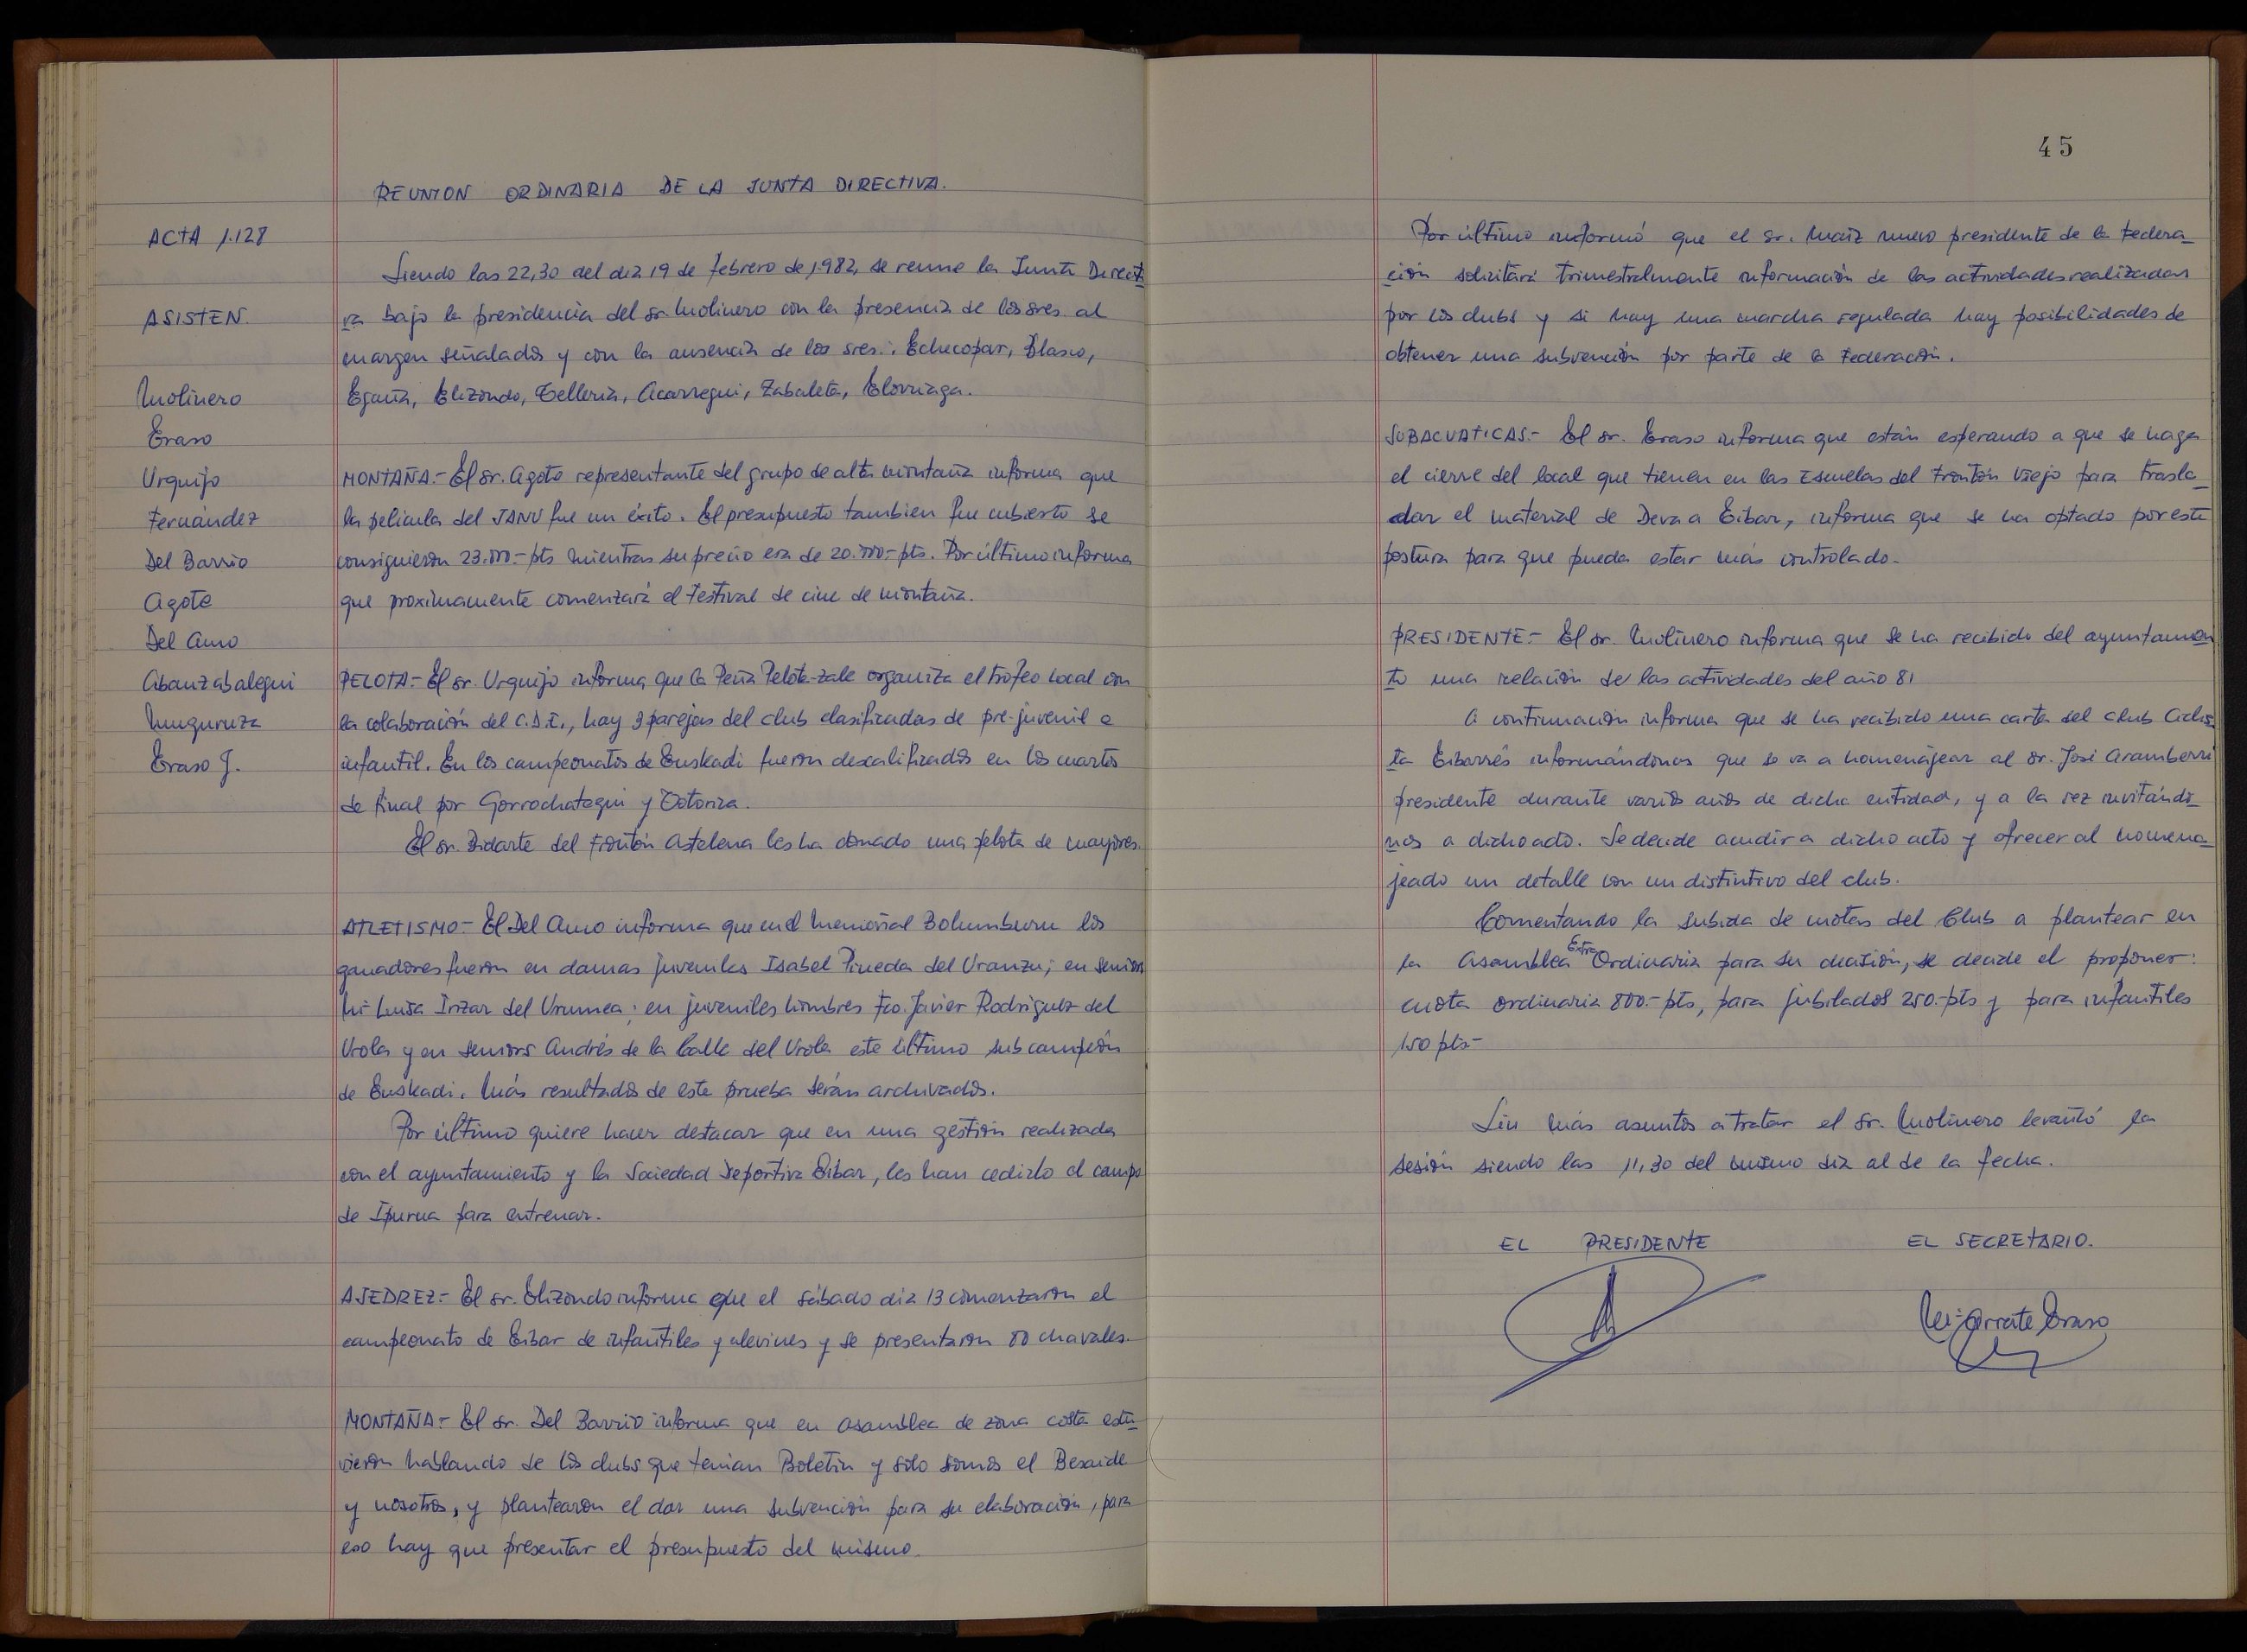 REUNION ORDINARIA DE LA JUNTA DIRECTIVA.
ACTA 1.128
Siendo las 22,30 del dia 19 de febrero de 1.982, se reune la Junta Directi
va bajo la presidencia del sr. Molinero con la presencia de los sres. al
margen señalados y con la ausencia de los sres.: Echecopar, Blasco,
Egaña, Elizondo, Telleria, Acarregui, Zabaleta, Elorriaga.
ASISTEN.
Molinero
Eraso
Urquijo
Fernández
Del Barrio
Agote
Del Amo
Abanzabalegui
Muguruza
Eraso J.
MONTAÑA.- El sr. Agote representante del grupo de alta montaña informa que
la pelicula del JANU fue un éxito. El presupuesto tambien fue cubierto se
consiguieron 23.000.- pts mientras su precio era de 20.000.- pts. Por último informa
que proximamente comenzará el festival de cine de montaña.
PELOTA.- El sr. Urquijo informa que la Peña Pelota-zale organiza el trofeo local con
la colaboración del C.D.E., hay 3 parejas del club clasificadas de pre-juvenil e
infantil. En los campeonatos de Euskadi fueron descalificados en los cuartos
de final por Gorrochategui y Ostoriza.
El sr. Bidarte del Frontón Astelena les ha donado una pelota de mayores.
ATLETISMO.- El Del Amo informa que en el Memorial Bolumburu los
ganadores fueron en damas juveniles Isabel Pineda del Uranzu; en seniors
Mª Luisa Irizar del Urumea; en juveniles hombres Fco. Javier Rodriguez del
Urola y en seniors Andrés de la Calle del Urola este último subcampeón
de Euskadi. Más resultados de este prueba serán archivados.
Por último quiere hacer destacar que en una gestión realizada
con el ayuntamiento y la Sociedad Deportiva Eibar, les han cedido el campo
de Ipurua para entrenar.
AJEDREZ.- El sr. Elizondo informa que el sábado dia 13 comenzaron el
campeonato de Eibar de infantiles y alevines y se presentaron 80 chavales.
MONTAÑA.- El sr. Del Barrio informa que en asamblea de zona costa estu_
vieron hablando de los clubs que tenian Boletin y solo somos el Besaide
y nosotros, y plantearon el dar una subvención para su elaboración, para
eso hay que presentar el presupuesto del mismo.
45
Por último informó que el sr. Maiz nuevo presidente de la Federa_
ción solicitará trimestralmente información de las actividades realizadas
por los clubs y si hay una marcha regulada hay posibilidades de
obtener una subvención por parte de la Federación.
SUBACUATICAS.- El sr. Eraso informa que están esperando a que se haga
el cierre del local que tienen en las Escuelas del Frontón Viejo para trasla_
dar el material de Deva a Eibar, informa que se ha optado por esta
postura para que pueda estar más controlado.
PRESIDENTE.- El sr. Molinero informa que se ha recibido del ayuntamien
to una relación de las actividades del año 81
A continuación informa que se ha recibido una carta del Club Ciclis
ta Eibarrés informándonos que se va a homenajear al sr. José Aramberri
presidente durante varios años de dicha entidad, y a la vez invitándo_
nos a dicho acto. Se decide acudir a dicho acto y ofrecer al homena_
jeado un detalle con un distintivo del club.
Comentando la subida de cuotas del Club a plantear en
la Asamblea Extra Ordinaria para su decisión, se decide el proponer:
cuota ordinaria 800.- pts, para jubilados 250.- pts y para infantiles
150 pts-
Sin más asuntos a tratar el sr. Molinero levantó la
sesión siendo las 11,30 del mismo dia al de la fecha.
EL PRESIDENTE
EL SECRETARIO.
Mª Arrate Eraso